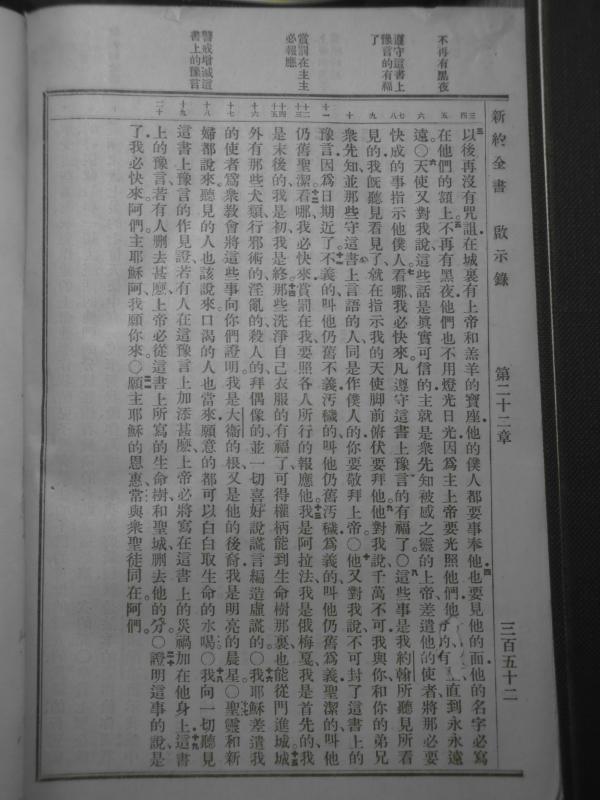 新約全書 啟示錄 第二十二章 三百五十二
不再有黑夜
遵守這書上豫言的有福了
賞罰在主主必報應
警戒增減這書上的豫言
以後再沒有咒詛在城裏有上帝和羔羊的寶座他的僕人都要事奉他也要見他的面他的名字必寫
在他們的額上不再有黑夜他們也不用燈光日光因為主上帝要光照他們他 直到永永遠
遠○天使又對我說這些話是眞實可信的主就是衆先知被感之靈的上帝差遣他的使者將那必要
快成的事指示他僕人看哪我必快來凡遵守這書上豫言的有福了○這些事是我約翰所聽見所看
見的我旣聽見看見了就在指示我的天使脚前俯伏要拜他他對我說千萬不可我與你和你的弟兄
衆先知並那些守這書上言語的人同是作僕人的你要敬拜上帝○他又對我說不可封了這書上的
豫言因為日期近了不義的叫他仍舊不義汚穢的叫他仍舊汚穢為義的叫他仍舊為義聖潔的叫他
仍舊聖潔看哪我必快來賞罰在我要照各人所行的報應他我是阿拉法我是俄梅戛我是首先的我
是末後的我是初我是終那些洗淨自己衣服的有福了可得權柄能到生命樹那裏也能從門進城城
外有那些犬類行邪術的淫亂的殺人的拜偶像的並一切喜好說謊言編造虛謊的○我耶穌差遣我
的使者為衆教會將這些事向你們證明我是大衞的根又是他的後裔我是明亮的晨星○聖靈和新
婦都說來聽見的人也該說來口渴的人也當來願意的都可以白白取生命的水喝○我向一切聽見
這書上豫言的作見證若有人在這豫言上加添甚麽上帝必將寫在這書上的災禍加在他身上這書
上的豫言若有人删去甚麽上帝必從這書上所寫的生命樹和聖城删去他的分○證明這事的說是
了我必快來阿們主耶穌阿我願你來○願主耶穌的恩惠常與衆聖徒同在阿們